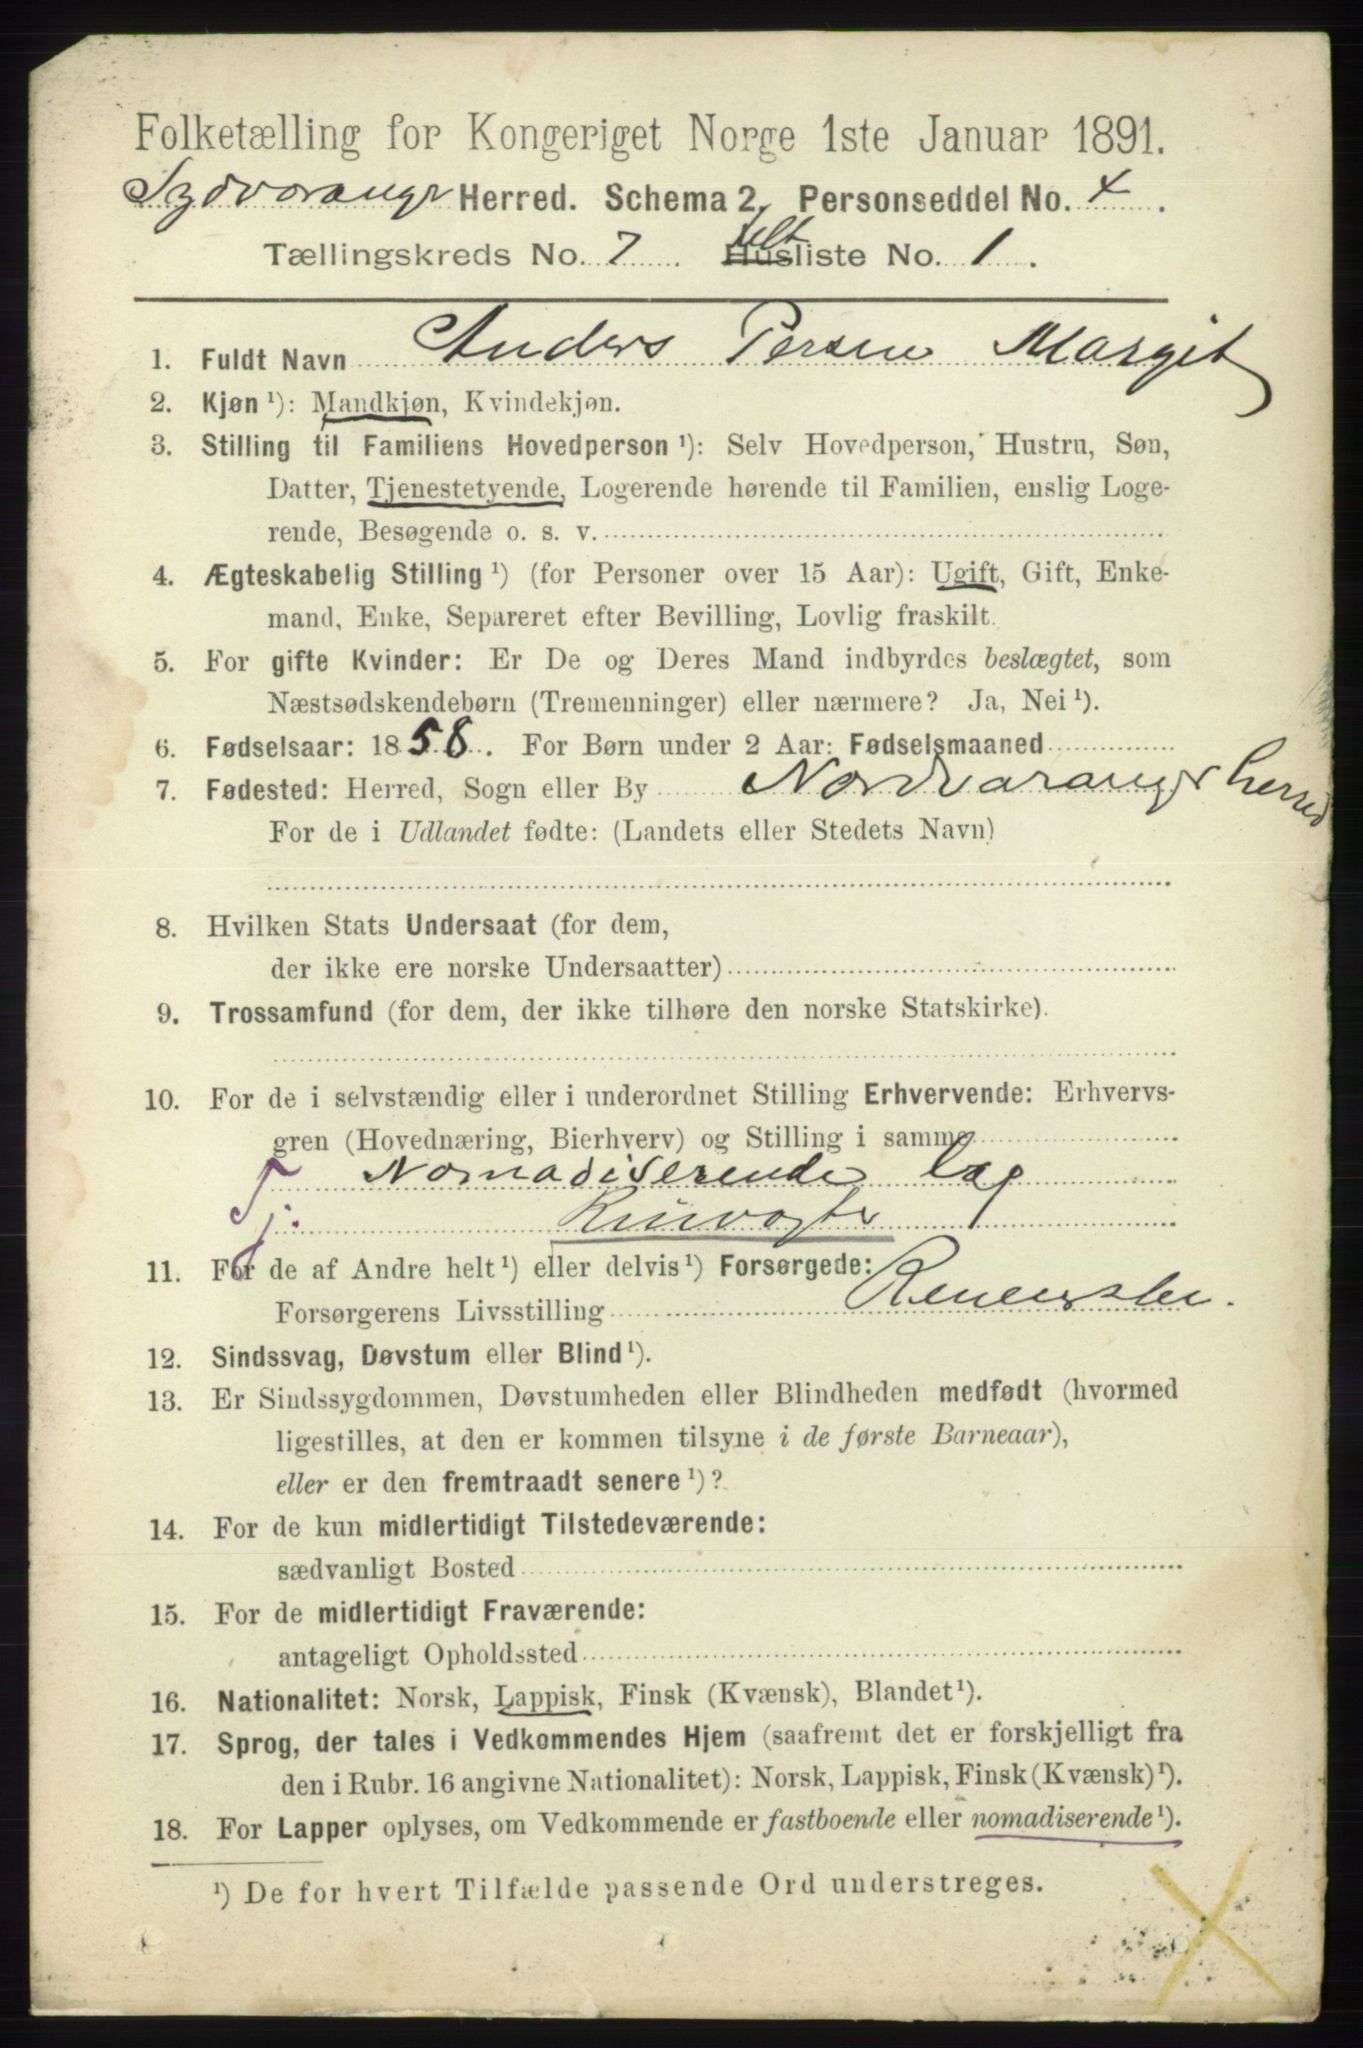 Folketælling for Kongeriget Norge 1ste Januar 1891.
Sydvaranger Herred. Schema 2. Personseddel No. 4.
telt
Tællingskreds No. 7 Husliste No. 1.
1. Fuldt Navn Anders Persen Margit
2. Kjøn ¹): Mandkjøn, Kvindekjøn.
3. Stilling til Familiens Hovedperson ¹): Selv Hovedperson, Hustru, Søn,
Datter, Tjenestetyende, Logerende hørende til Familien, enslig Loge-
rende, Besøgende o. s. v.
4. Ægteskabelig Stilling ¹) (for Personer over 15 Aar): Ugift, Gift, Enke-
mand, Enke, Separeret efter Bevilling, Lovlig fraskilt.
5. For gifte Kvinder: Er De og Deres Mand indbyrdes beslægtet, som
Næstsødskendebørn (Tremenninger) eller nærmere? Ja, Nei ¹).
6. Fødselsaar: 1858. For Børn under 2 Aar: Fødselsmaaned
7. Fødested: Herred, Sogn eller By Nordvaranger herred
For de i Udlandet fødte: (Landets eller Stedets Navn)
8. Hvilken Stats Undersaat (for dem,
der ikke ere norske Undersaatter)
9. Trossamfund (for dem, der ikke tilhøre den norske Statskirke).
10. For de i selvstændig eller i underordnet Stilling Erhvervende: Erhvervs-
gren (Hovednæring, Bierhverv) og Stilling i samme
Nomadiserende Lap
Tj. Rinvogter
11. For de af Andre helt ¹) eller delvis ¹) Forsørgede:
Forsørgerens Livsstilling
12. Sindssvag, Døvstum eller Blind ¹).
13. Er Sindssygdommen, Døvstumheden eller Blindheden medfødt (hvormed
ligestilles, at den er kommen tilsyne i de første Barneaar),
eller er den fremtraadt senere ¹)?
14. For de kun midlertidigt Tilstedeværende:
sædvanligt Bosted
15. For de midlertidigt Fraværende:
antageligt Opholdssted
16. Nationalitet: Norsk, Lappisk, Finsk (Kvænsk), Blandet ¹).
17. Sprog, der tales i Vedkommendes Hjem (saafremt det er forskjelligt fra
den i Rubr. 16 angivne Nationalitet): Norsk, Lappisk, Finsk (Kvænsk) ¹).
18. For Lapper oplyses, om Vedkommende er fastboende eller nomadiserende ¹).
¹) De for hvert Tilfælde passende Ord understreges.